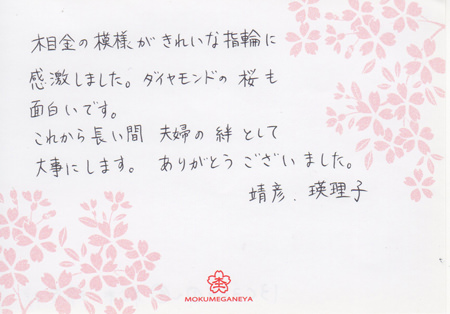 木目金の模様がきれいな指輪に
感激しました。ダイヤモンドの桜も
面白いです。
これから長い間 夫婦の絆として
大事にします。 ありがとうございました。
靖彦、瑛理子
MOKUMEGANEYA